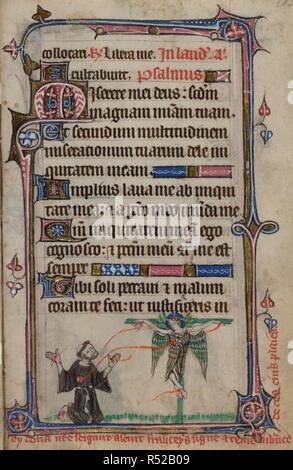 collocari. R. Libera me. In laud. A.
Exultabunt. Psalmus
Miserere mei deus: scdm
magnam miam tuam.
Et secundum multitudinem
miserationum tuarum dele ini
quitatem meam.
Amplius laua me ab iniqui
tate mea: et a peccato meo munda me
Qm iniquitatem meam ego
cognosco: et peccatum meum contra me est
semper
Tibi soli peccaui et malum
coram te feci: ut iustificeris in
alamy
R52B09